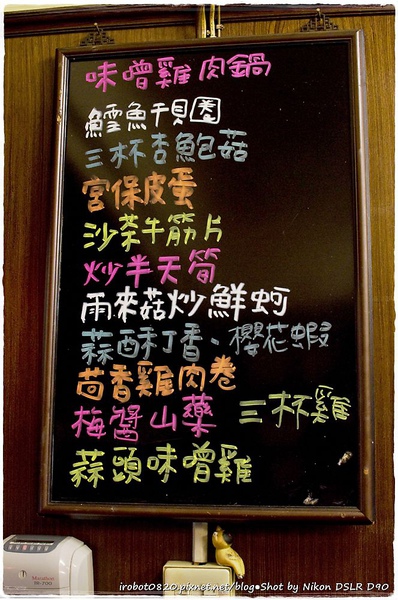 味噌雞肉鍋
鱈魚干貝圈
三杯杏鮑菇
宮保皮蛋
沙茶牛筋片
炒半天筍
雨來菇炒鮮蚵
蒜酥丁香、櫻花蝦
茴香雞肉卷
梅醬山藥 三杯雞
蒜頭味噌雞
irobot0820.pixnet.net/blog●Shot by Nikon DSLR D90